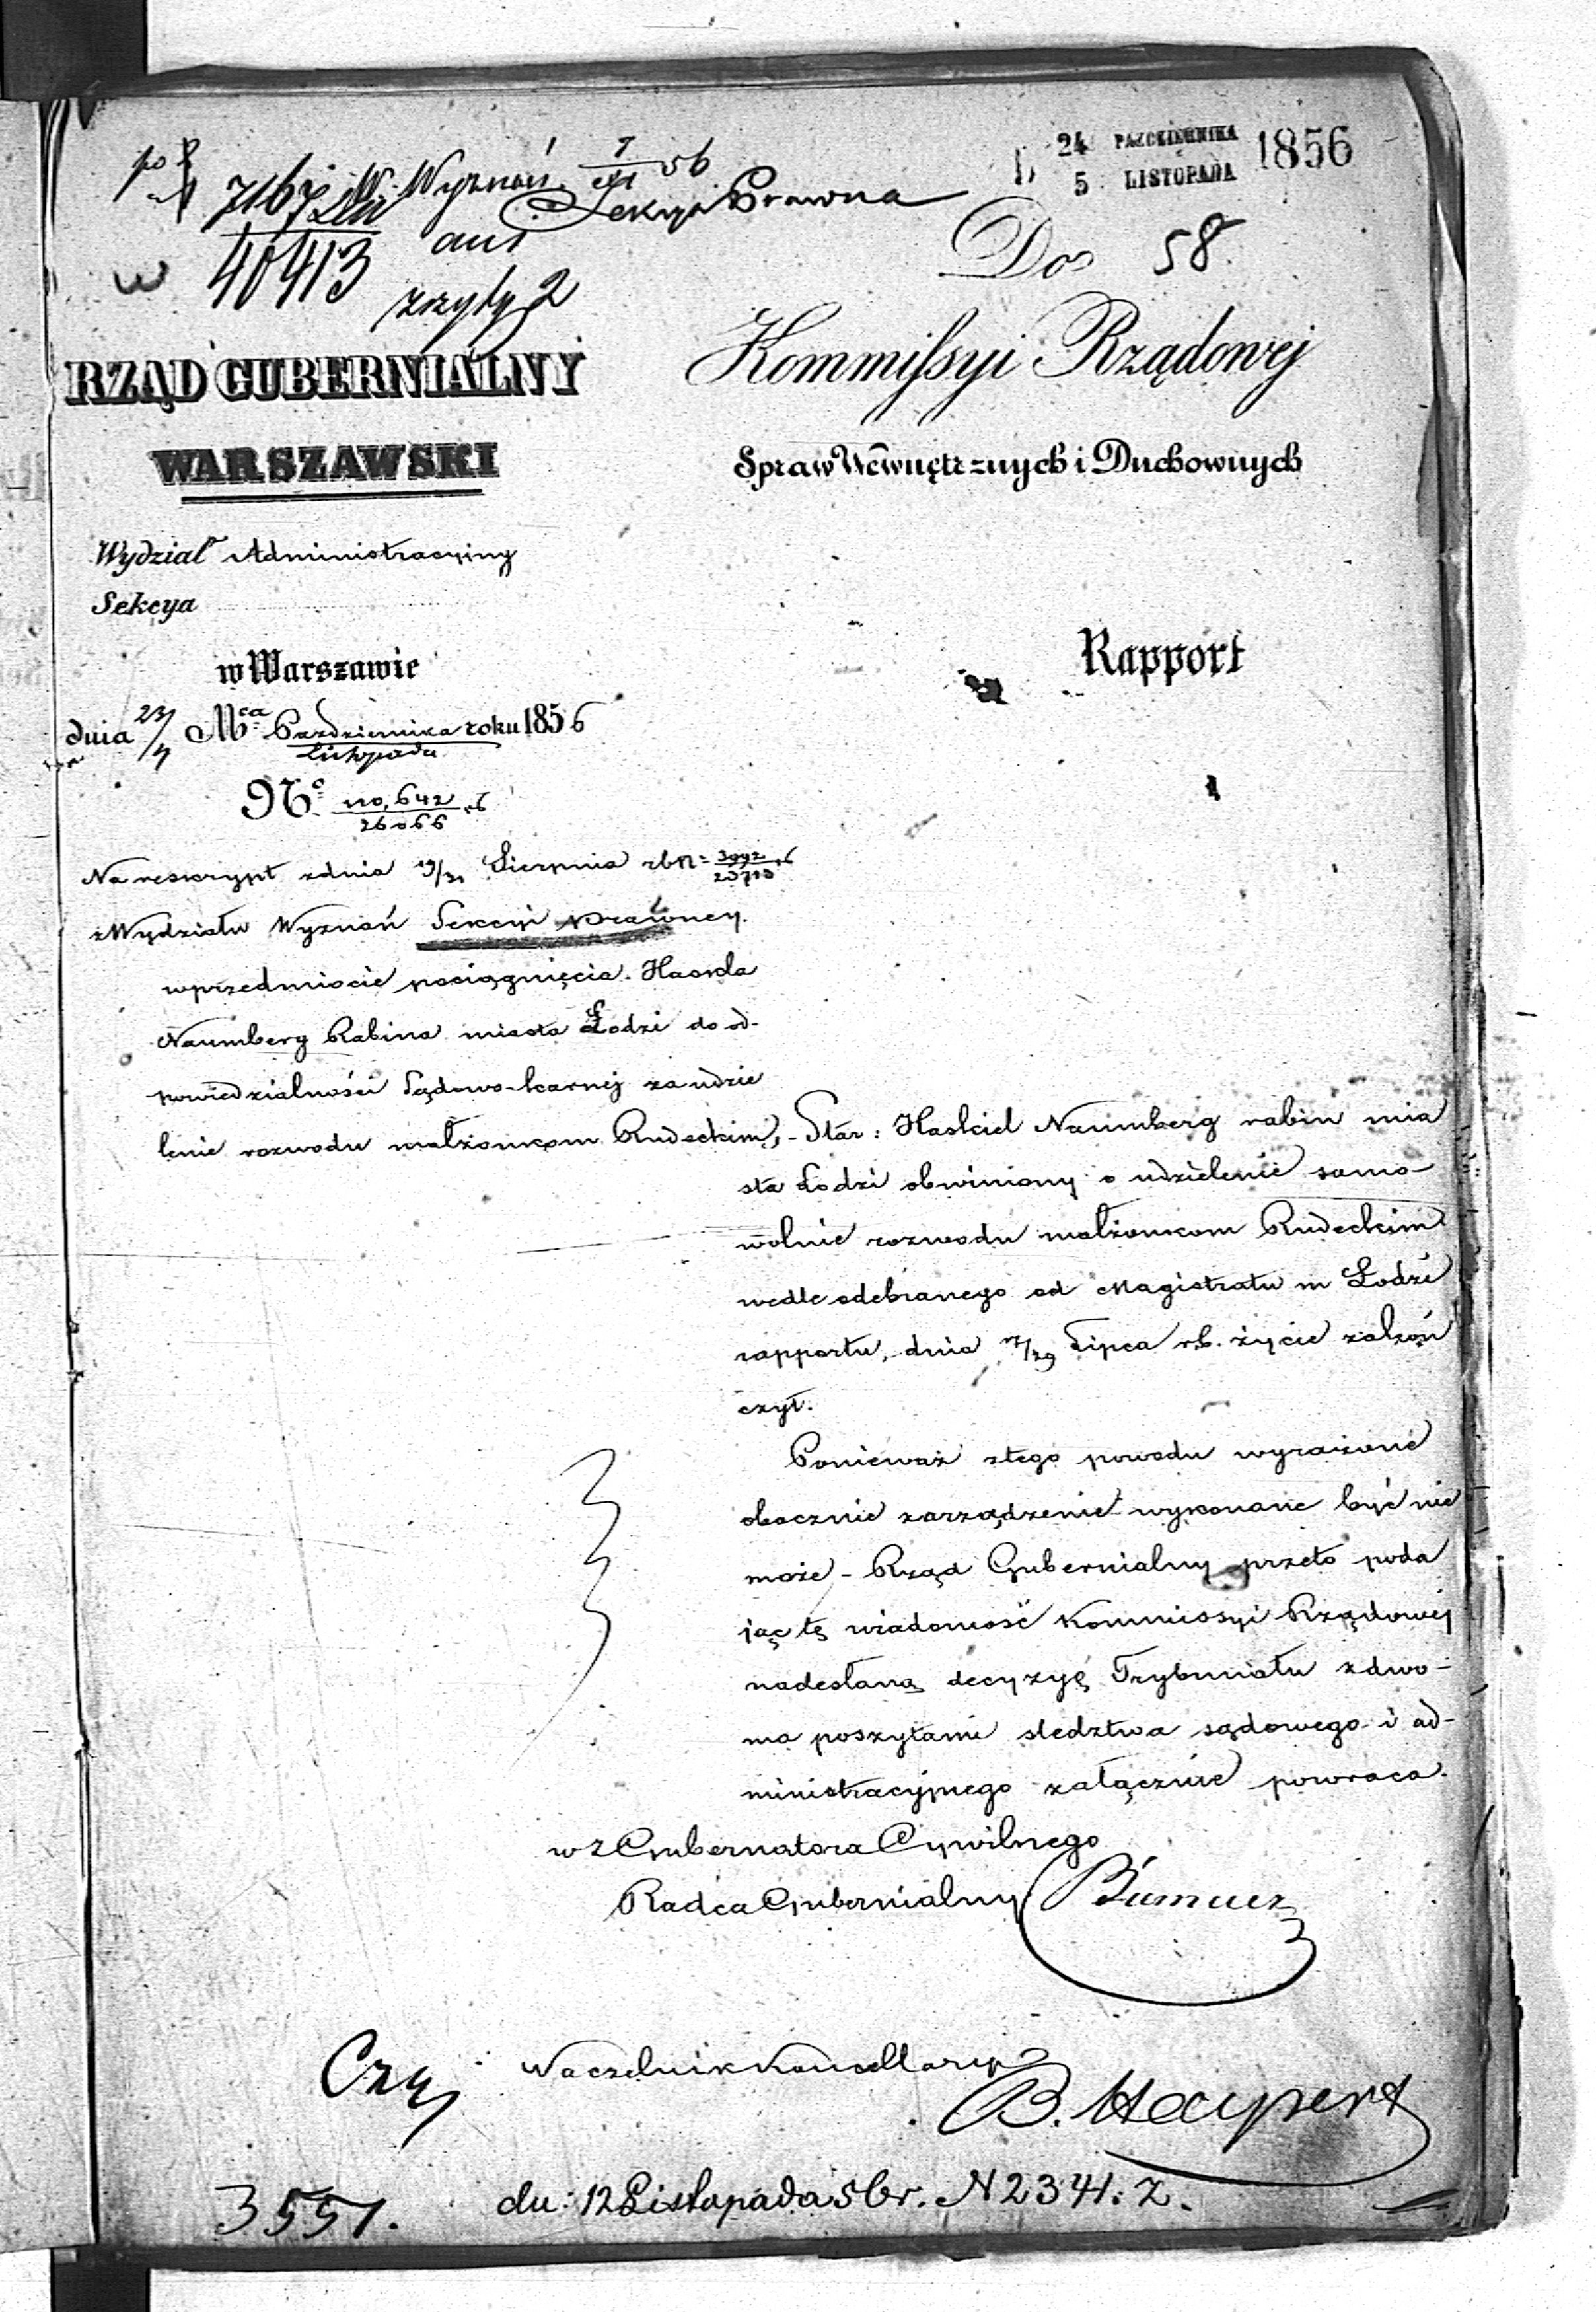 7167 W. Wyznań 7/XI 56
Sekcyi Prawna
40413
24 PAZDZIERNIKA
5 LISTOPADA 1856
58.
Do
Kommissyi Rządowej
Spraw Wewnętrznych i Duchownych
RZĄD GUBERNIALNY
WARSZAWSKI
Wydział Administracyjny
Sekcya
w Warszawie
dnia 23/4 Mca Października/Listopada roku 1856
No 110,642/26066
Rapport
Na reskrypt z dnia 19/31 Sierpnia rb N=
z Wydziału Wyznań Sekcyi Prawney.
w przedmiocie pociągnięcia Haskla
Naumberg Rabina miasta Łodzi do od-
powiedzialności Sądowo-karnej za udzie
lenie rozwodu małżonkom Rudeckim,
- Star: Haskiel Naumberg rabin mia
sta Łodzi obwiniony o udzielenie samo-
wolnie rozwodu małżonkom Rudeckim
wedle odebranego od Magistratu m Łodzi
rapportu, dnia 17/29 Lipca r.b. życie zakoń
czył.
Ponieważ z tego powodu wyrażone
obocznie zarządzenie wykonane być nie
może - Rząd Gubernialny przeto poda
jąc tę wiadomość Kommissyi Rządowej
nadesłaną decyzyę Trybunału z dwo-
ma poszytami śledztwa sądowego i ad-
ministracyjnego załącznie powraca.
w z Gubernatora Cywilnego
Radca Gubernialny
Naczelnik Kancellaryi
3551.
du: 12 Listopada 56 r. N 2341. Z.